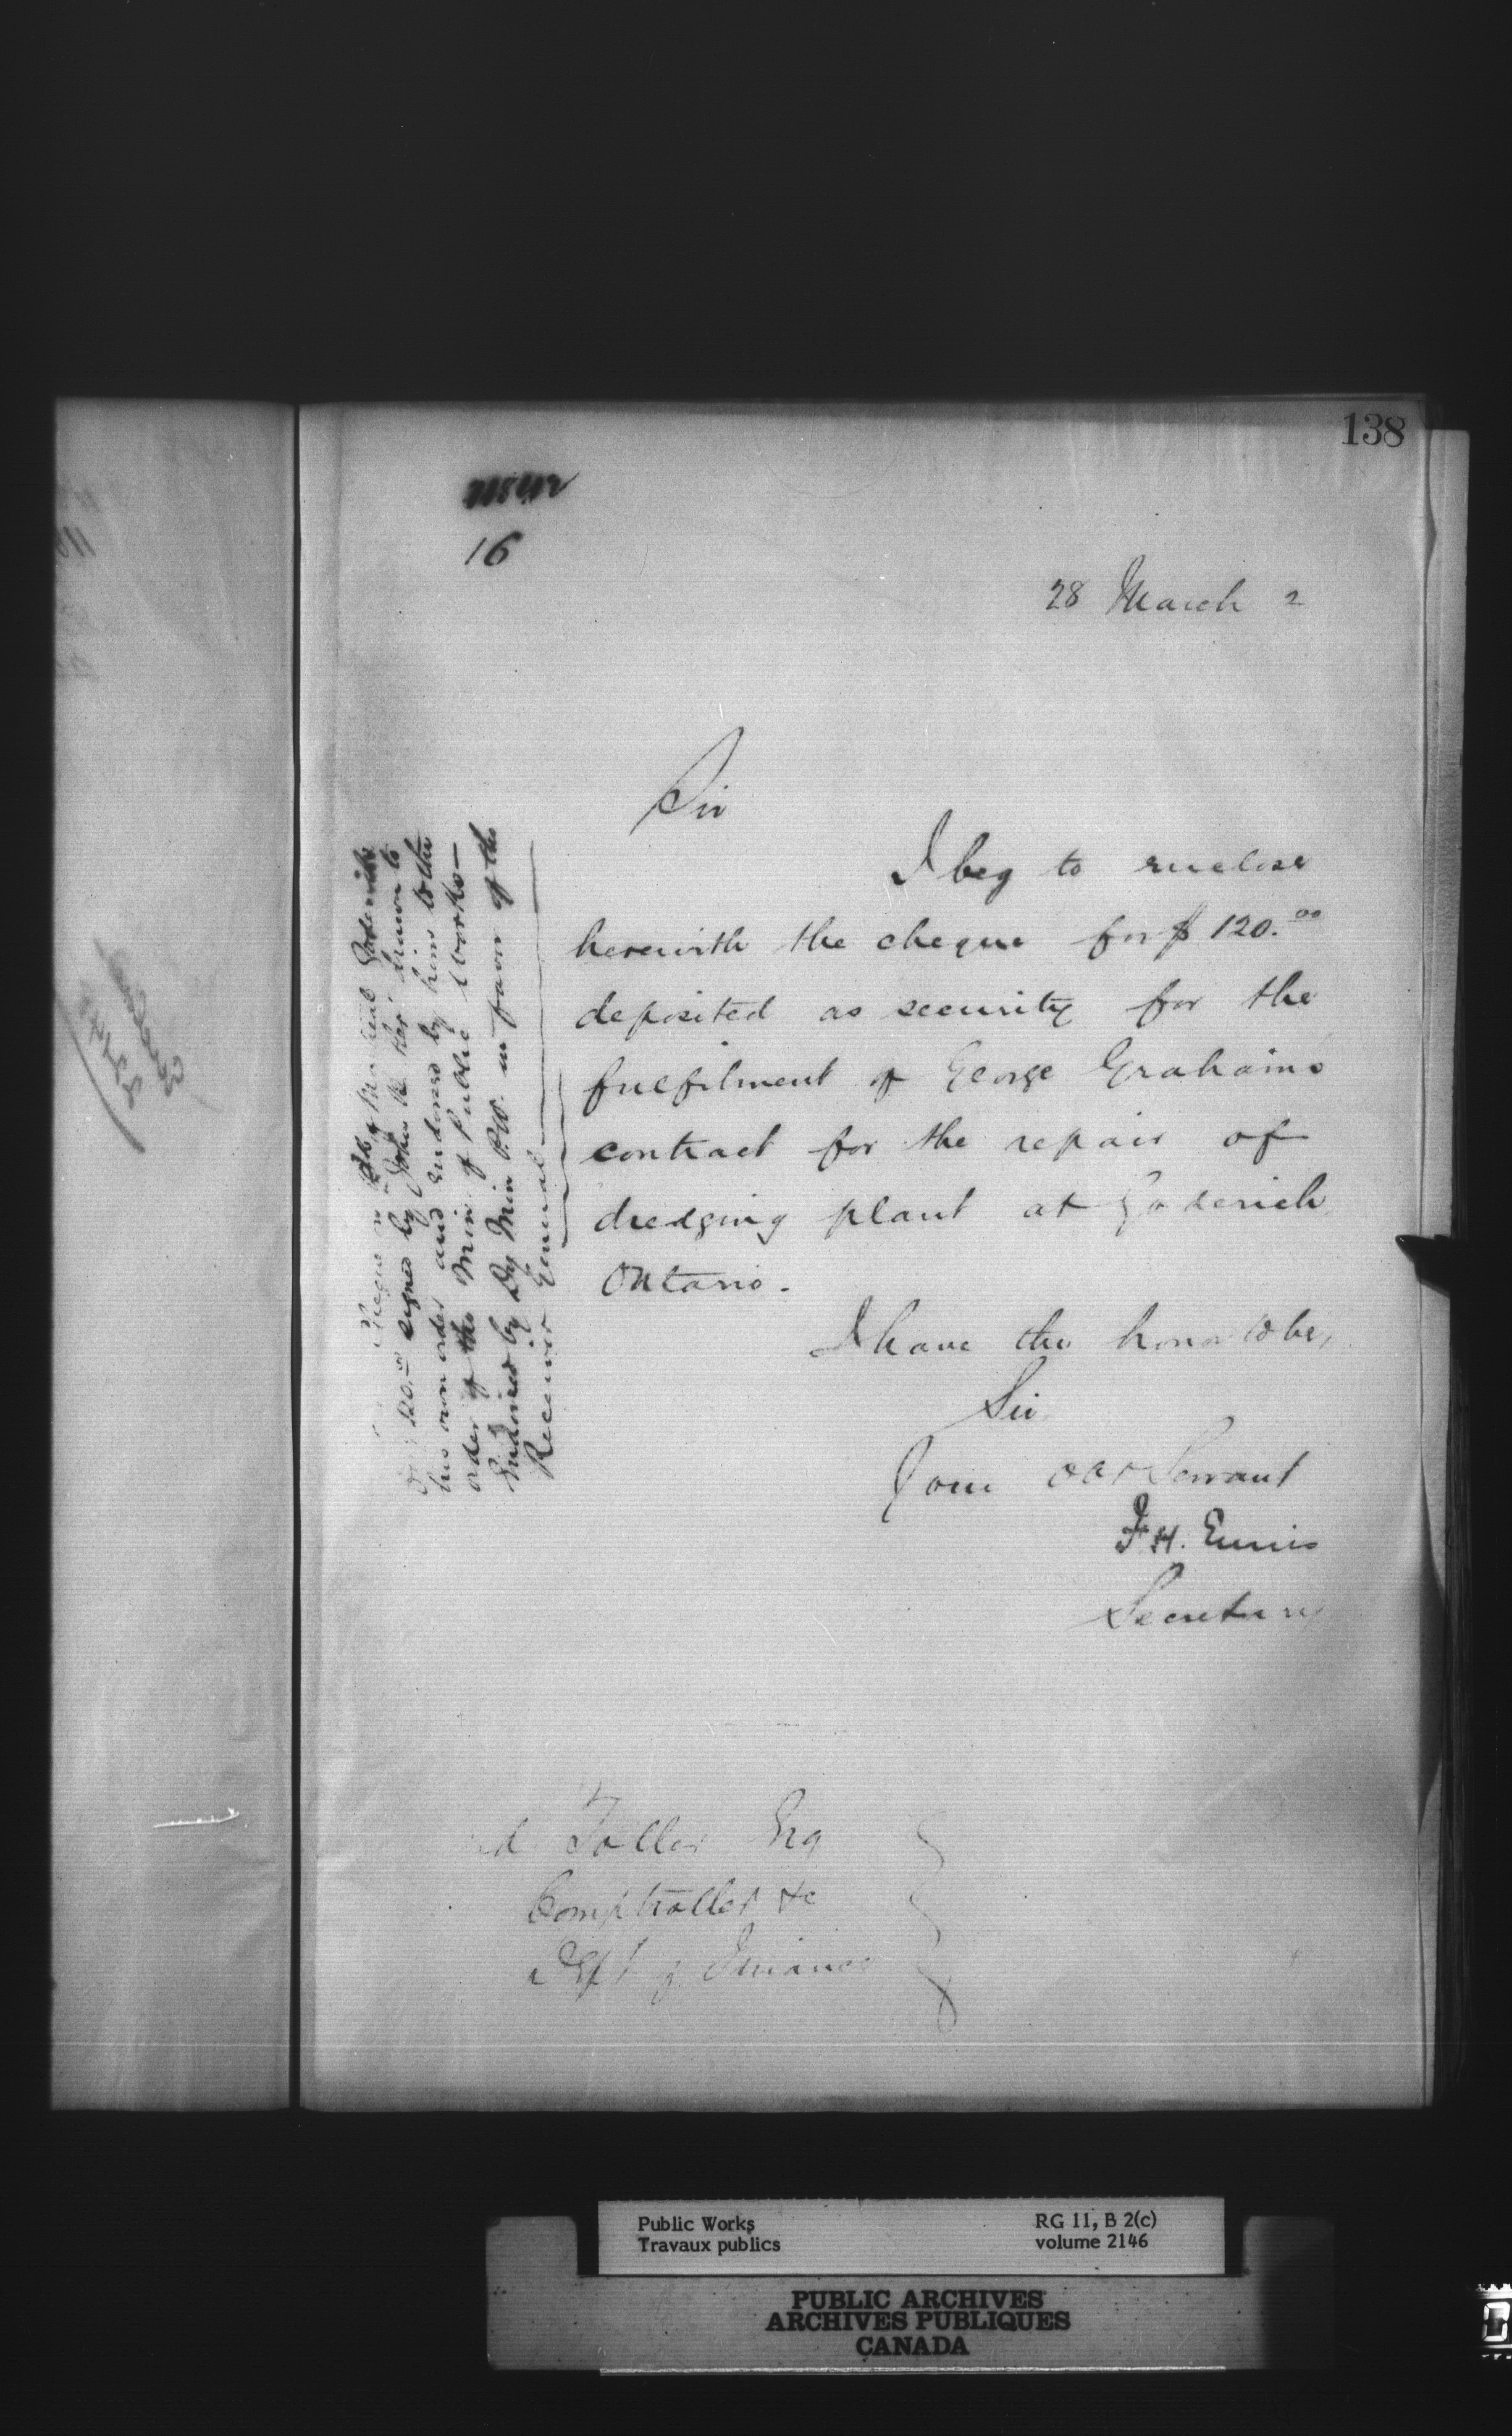 138
16
28 March 2
Sir
I beg to enclose
herewith the cheque for $ 120.00
deposited as security for the
fulfilment of George Grahams
contract for the repair of
dredging plant at Goderich
Ontario.
I have the honor to be,
Sir
Your Obt Servant
F. H. Ennis
Secretary
Cheque Bk of Montreal Goderich
120.00 signed by John drawn to
his own order and endorsed by him to the
order of the Min. of Public Works—
Endorsed by Dy Min P.W. in favor of the
Receiver General
Toller Esq
Comptroller &c
Dept of Finance
Public Works
Travaux publics
RG 11, B 2(c)
volume 2146
PUBLIC ARCHIVES
ARCHIVES PUBLIQUES
CANADA